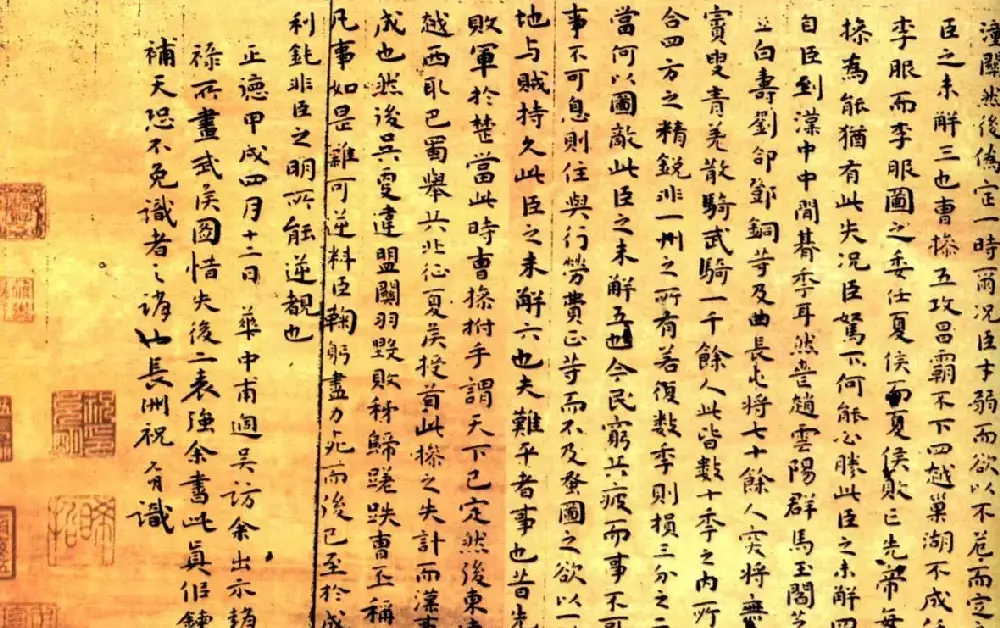 潼關然後偽定一時爾况臣才弱而欲以不危而定
臣之未解三也曹操五攻昌霸不下四越巢湖不成任
李服而李服圖之委任夏侯而夏侯敗亡先帝每
操為能猶有此失况臣駑下何能必勝此臣之未解四
自臣到漢中中間朞季耳然喪趙雲陽群馬玉閻芝
立白壽劉郃鄧銅等及曲長屯將七十餘人突將無
竇叟青羌散騎武騎一千餘人此皆數十季之內所
合四方之精銳非一州之所有若復數季則損三分之二
當何以圖敵此臣之未解五也今民窮兵疲而事不可
事不可息則住與行勞費正等而不及蚤圖之欲以一
地与賊持久此臣之未解六也夫難平者事也昔先
敗軍於楚當此時曹操拊手謂天下已定然後東
越西取巴蜀舉兵北征夏侯授首此操之失計而漢事
成也然後吳更違盟關羽毀敗秭歸蹉跌曹丕稱
凡事如是難可逆料臣鞠躬盡力死而後已至於成
利鈍非臣之明所能逆覩也
正德甲戌四月十二日華中甫過吳訪余出示趙
祿所畫武侯圖惜失後二表強余書此真佀鍊
補天恐不免識者之誚也長洲祝允明識